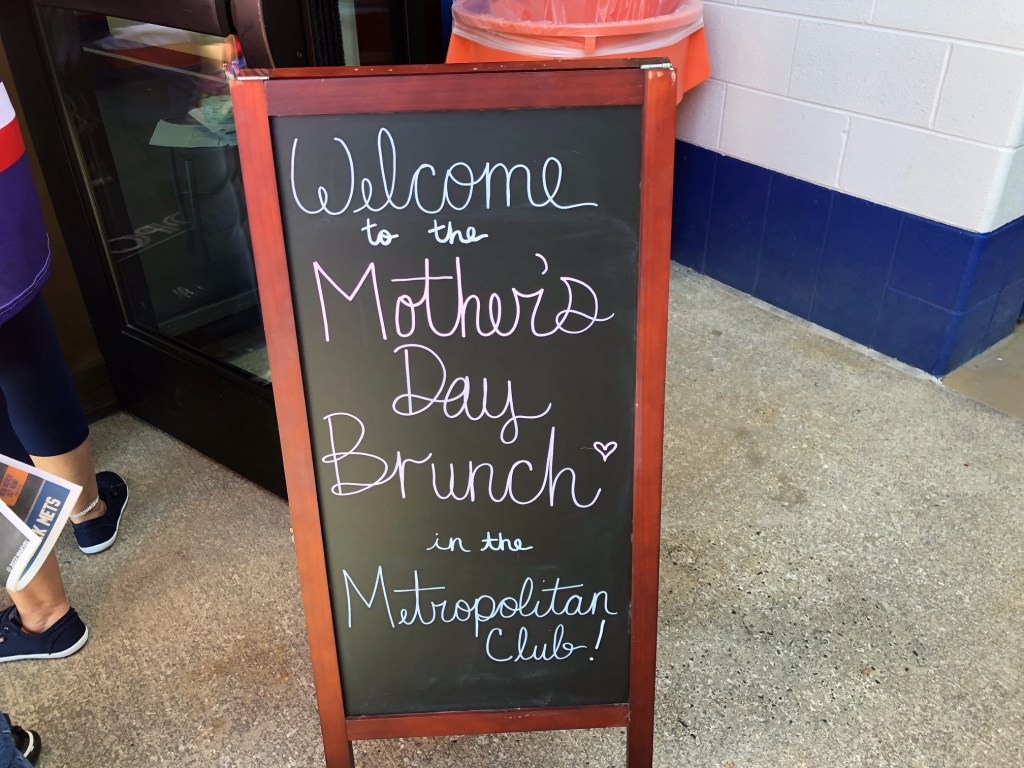 Welcome
to the
Mother's
Day
Brunch
in the
Metropolitan
Club!
K METS